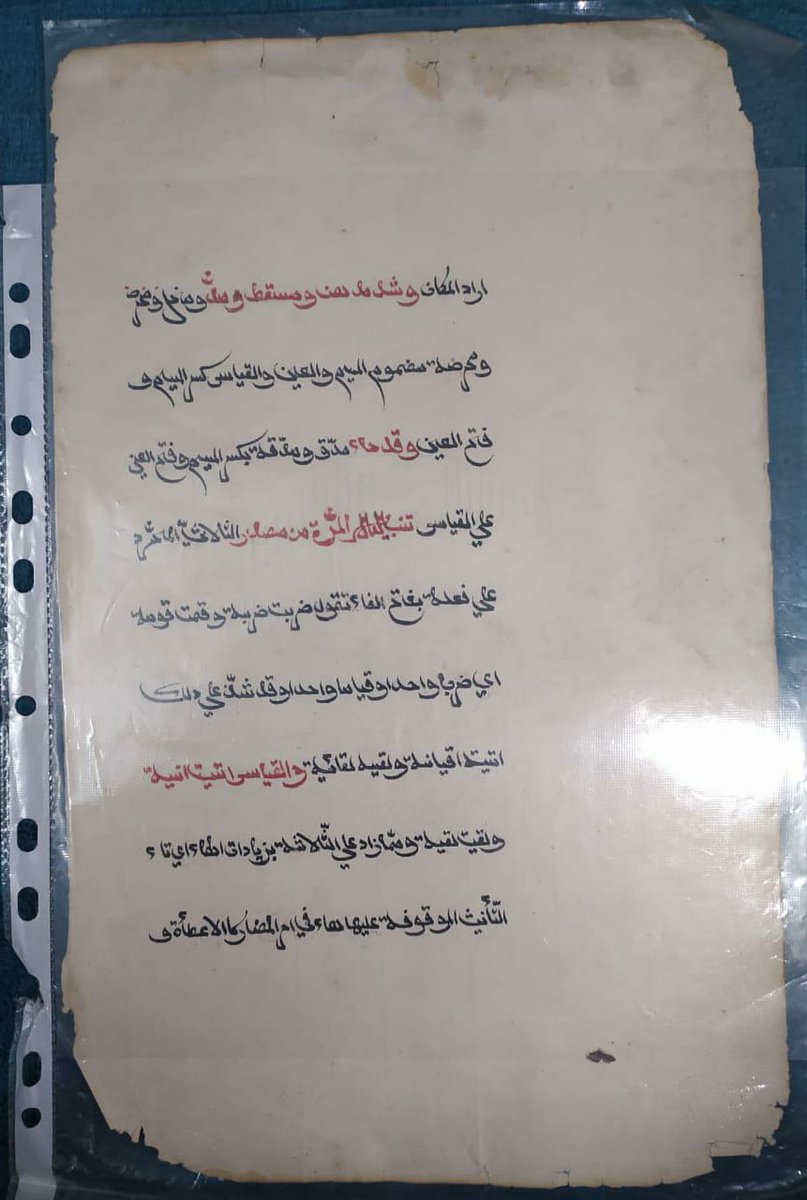 اراد المكان وشذ مدهن ومسقط ومدق ومنخل ومحرض
ومحرضة مضموم الميم والعين والقياس كسر الميم و
فتح العين وقد جاء مدّق ومدّقة بكسر الميم وفتح العين
علي القياس تنبيه المرّة من مصدر الثلاثيّ المجرّد
علي فعلة بفتح الفاء تقول ضربت ضربة وقمت قومة
اي ضربا واحدا وقياما واحدا وقد شذّ علي ذلك
اتيته اتيانة ولقيته لقائية والقياس اتيت اتية
ولقيت لقية وممّا زاد علي الثّلاثة بزيادات الهاء اي تاء
التّأنيث الموقوفة عليها هاء في المصدر كالاعطأة و